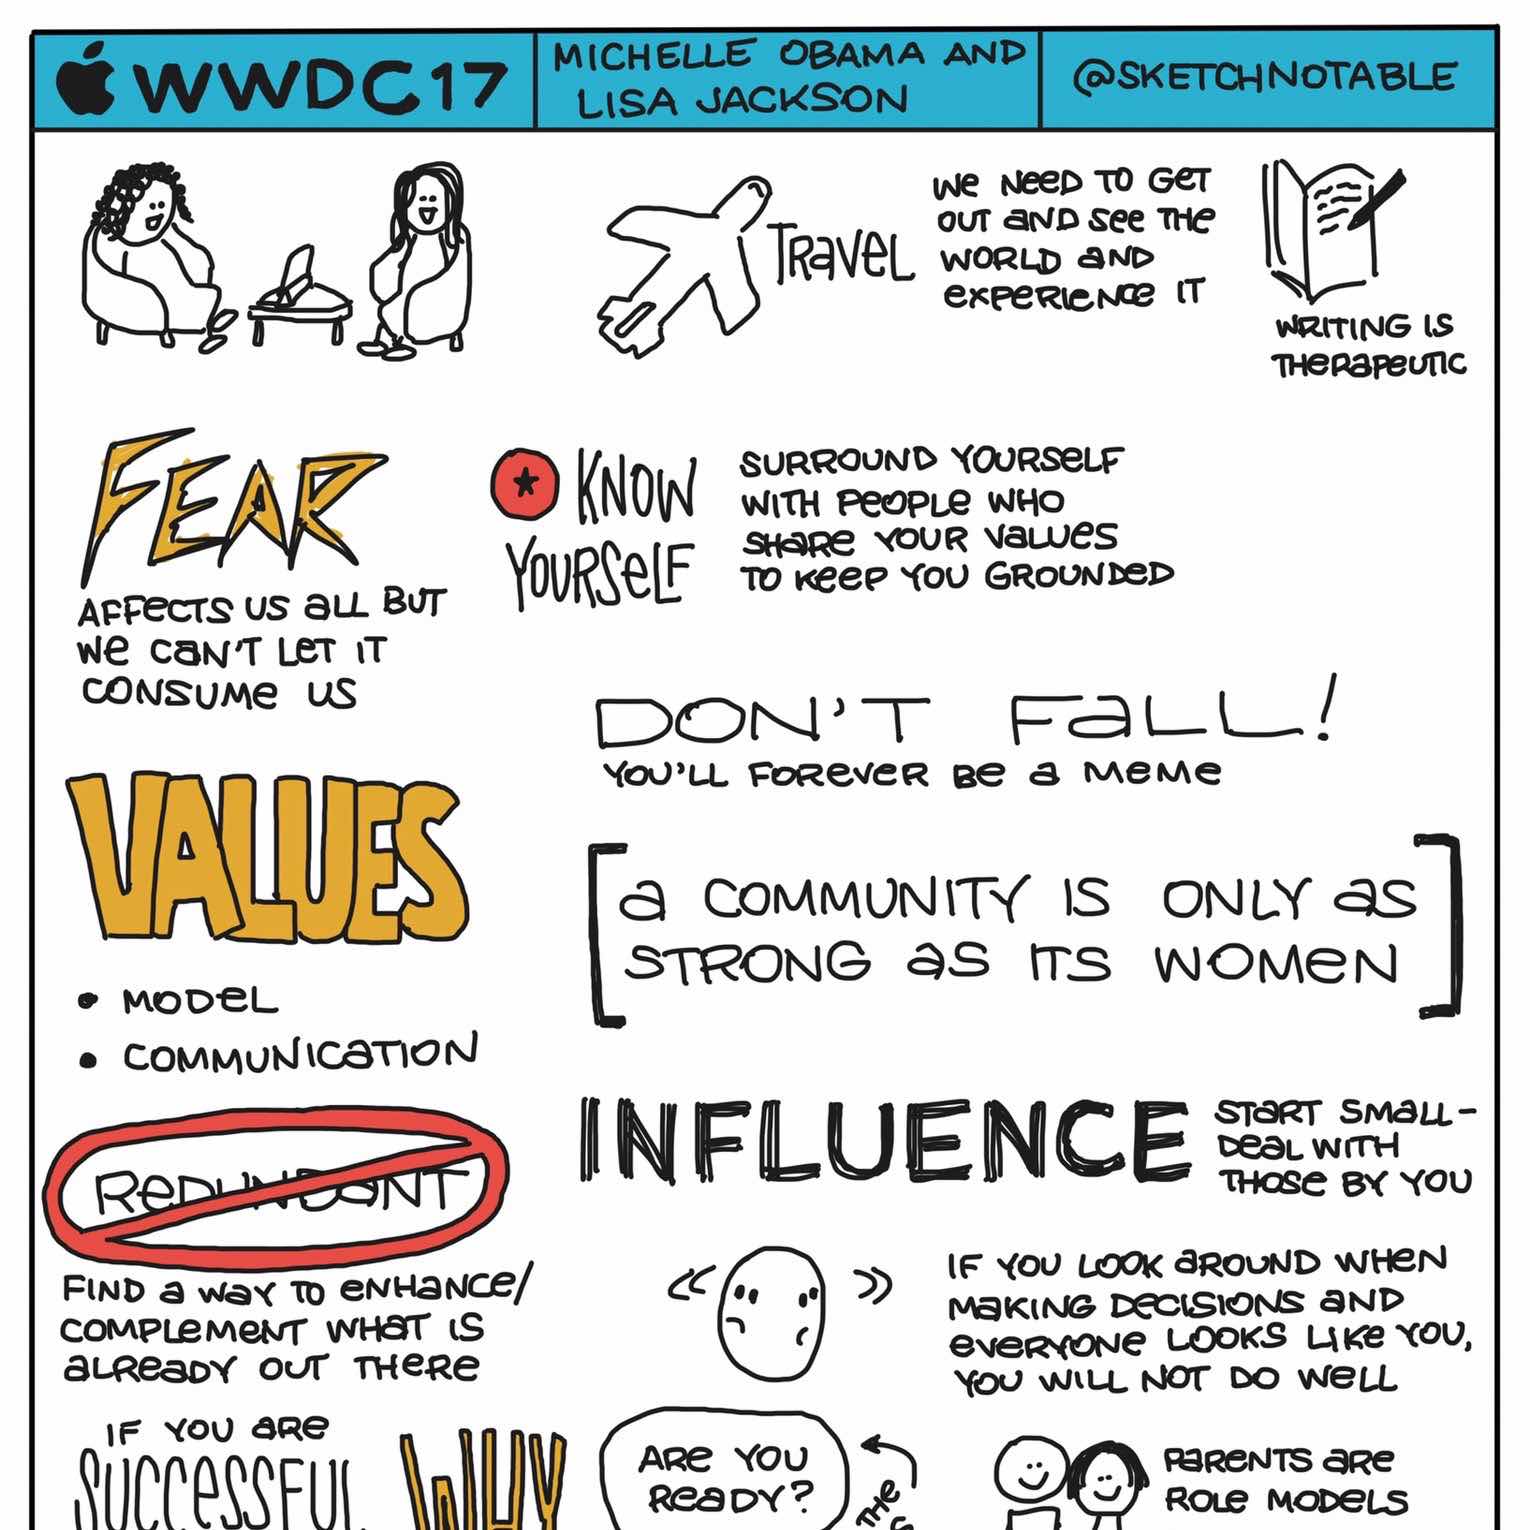 WWDC17
MICHELLE OBAMA AND
LISA JACKSON
@SKETCHNOTABLE
TRAVEL
WE NEED TO GET
OUT AND SEE THE
WORLD AND
EXPERIENCE IT
WRITING IS
THERAPEUTIC
FEAR
AFFECTS US ALL BUT
WE CAN'T LET IT
CONSUME US
KNOW
YOURSELF
SURROUND YOURSELF
WITH PEOPLE WHO
SHARE YOUR VALUES
TO KEEP YOU GROUNDED
DON'T FALL!
YOU'LL FOREVER BE A MEME
VALUES
• MODEL
• COMMUNICATION
[A COMMUNITY IS ONLY AS
STRONG AS ITS WOMEN]
REDUNDANT
FIND A WAY TO ENHANCE/
COMPLEMENT WHAT IS
ALREADY OUT THERE
INFLUENCE
START SMALL-
DEAL WITH
THOSE BY YOU
IF YOU LOOK AROUND WHEN
MAKING DECISIONS AND
EVERYONE LOOKS LIKE YOU,
YOU WILL NOT DO WELL
IF YOU ARE
SUCCESSFUL
WHY
ARE YOU
READY?
THE
PARENTS ARE
ROLE MODELS